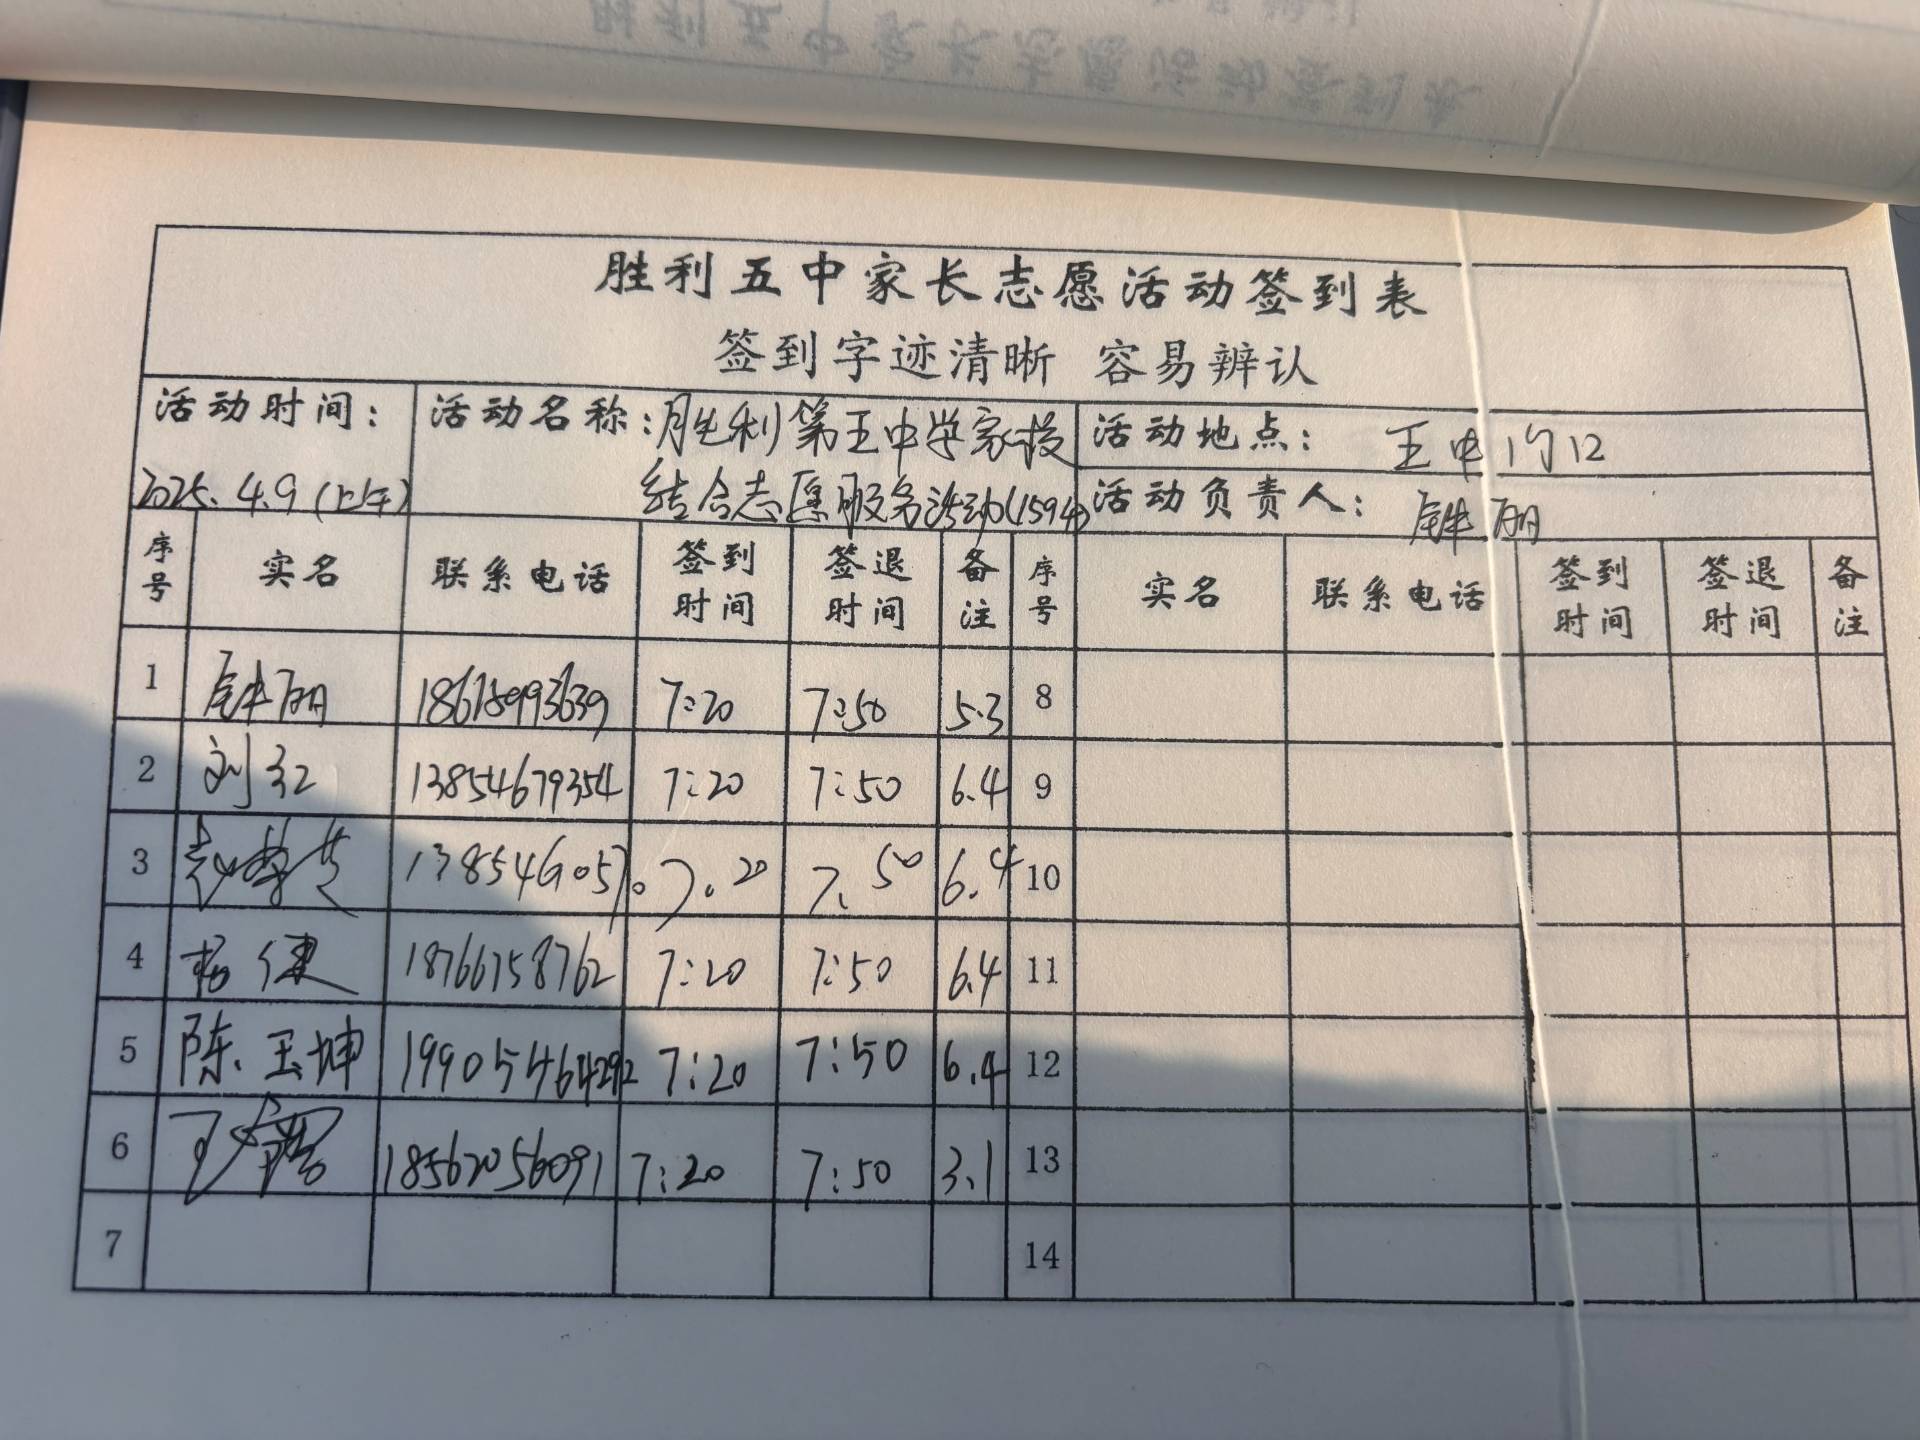 胜利五中家长志愿活动签到表
签到字迹清晰 容易辨认
活动时间： 2025.4.9(上午)
活动名称：胜利第五中学家校
结合志愿服务活动(1594)
活动地点： 五中门口
活动负责人： 丽
序号 实名 联系电话 签到时间 签退时间 备注 序号 实名 联系电话 签到时间 签退时间 备注
1 丽 7:20 7:50 5.3 8
2 刘红 13854679354 7:20 7:50 6.4 9
3 赵 7.20 7.50 6.4 10
4 杨健 18766758762 7:20 7:50 6.4 11
5 陈玉坤 7:20 7:50 6.4 12
6 王 18562056091 7:20 7:50 3.1 13
7 14